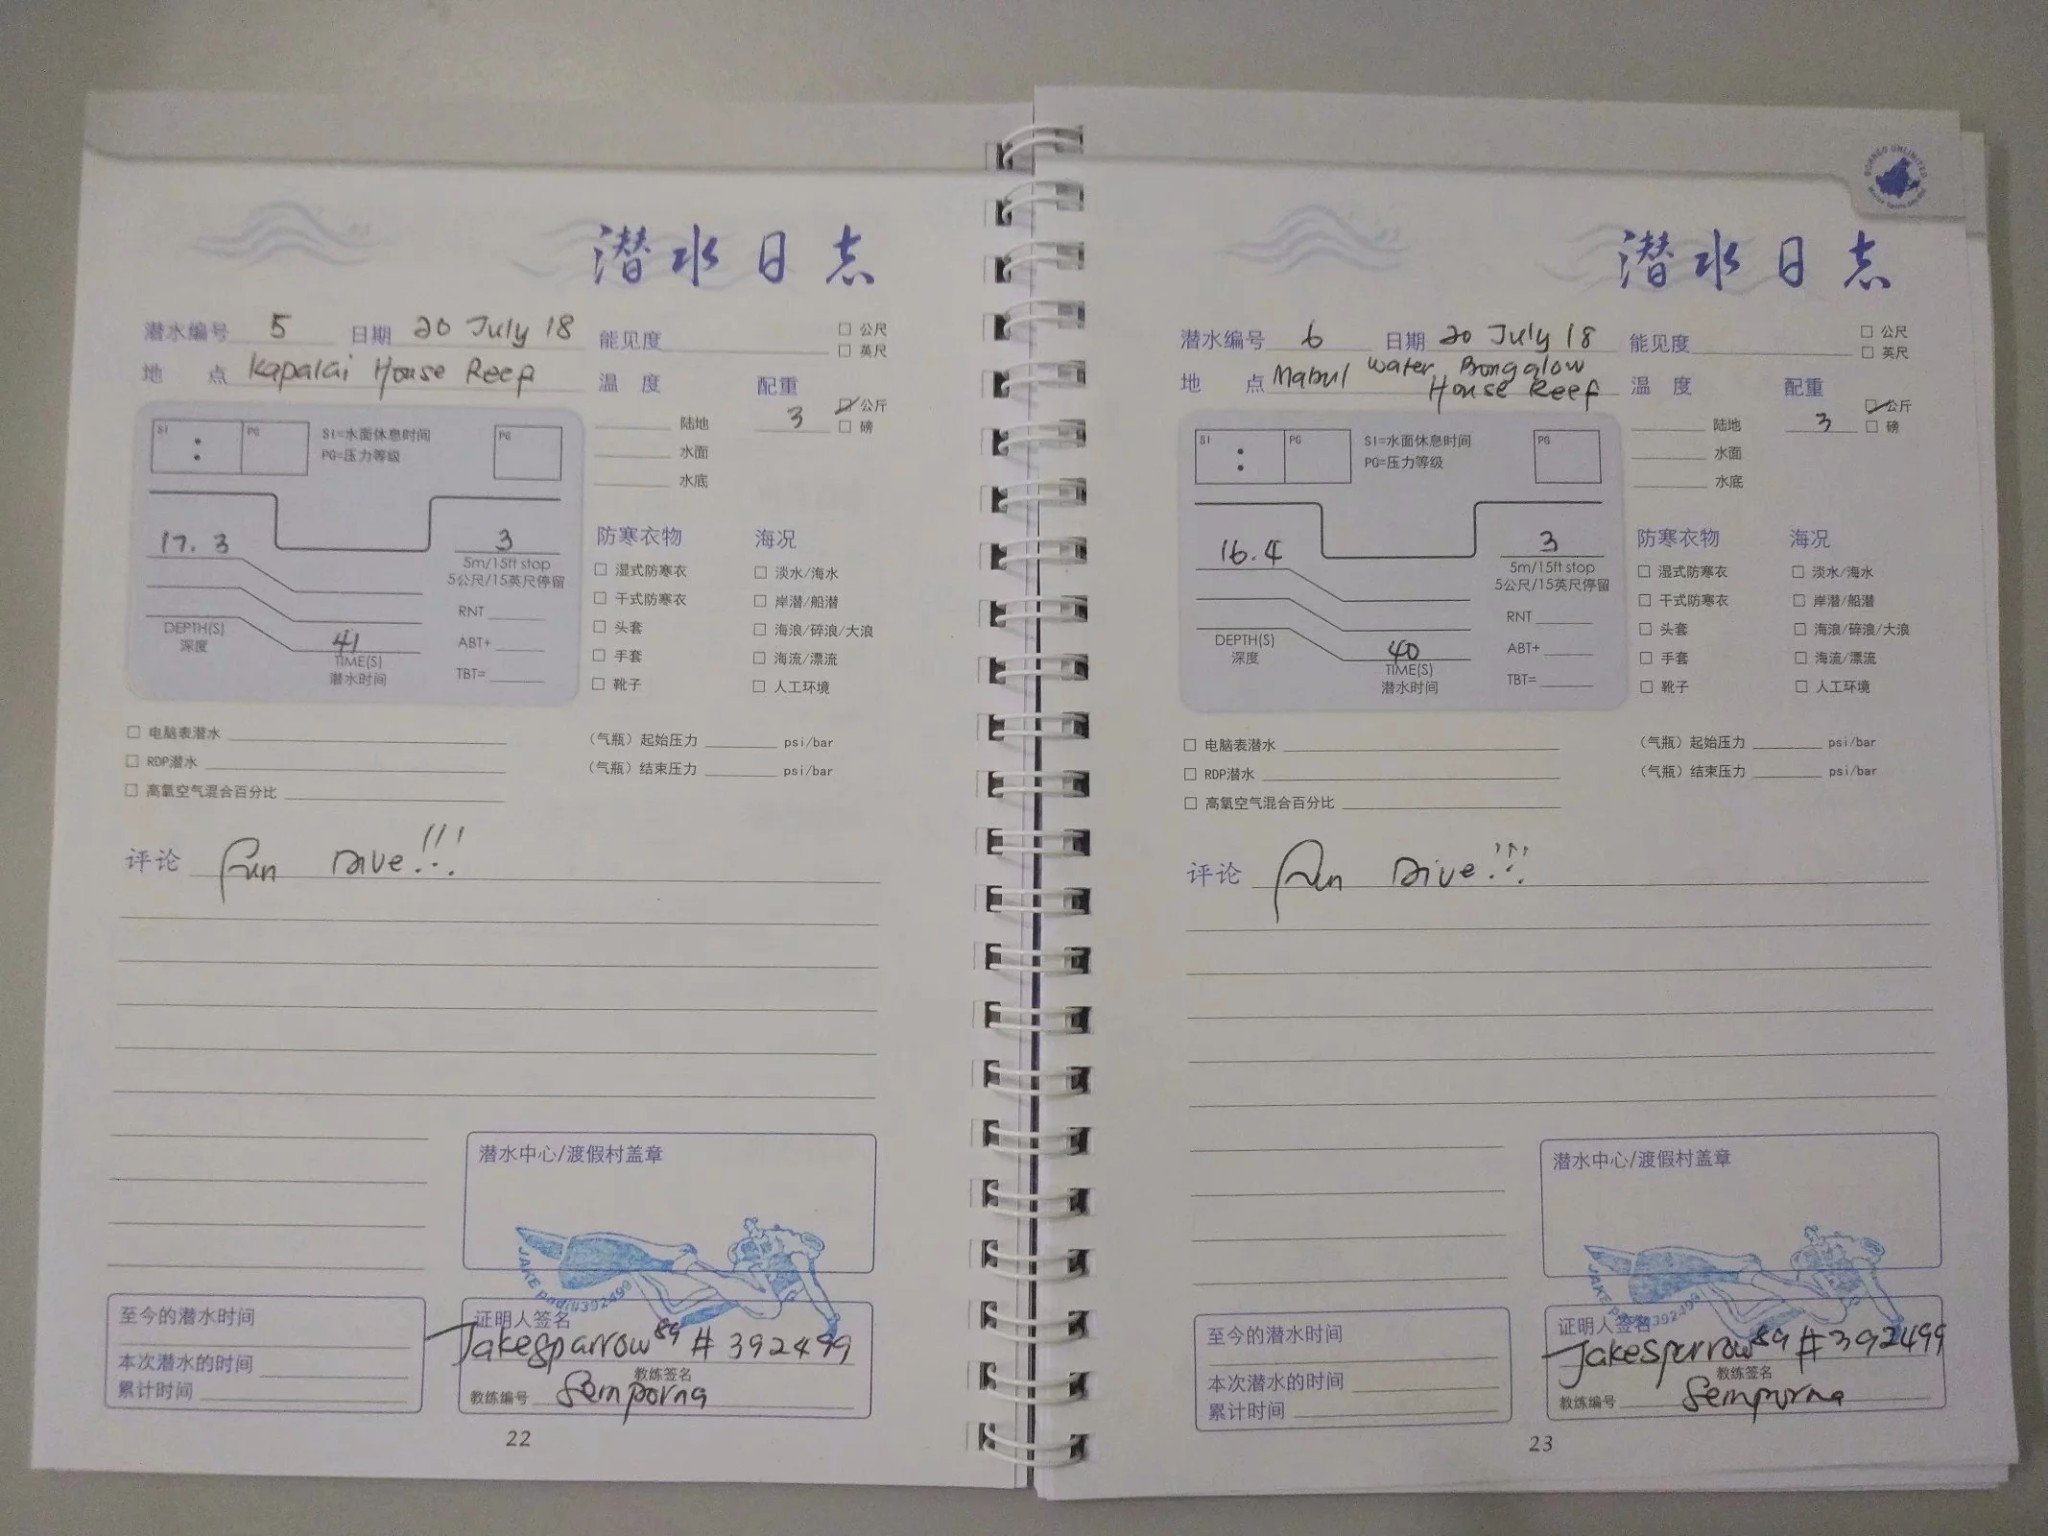 潜水日志
潜水编号 5 日期 20 July 18 能见度 □ 公尺
□ 英尺
地 点 Kapalai House Reef 温 度 配重
3 ☑ 公斤
□ 磅
陆地
水面
水底
SI : PG SI=水面休息时间
PG=压力等级 PG
17.3 3
5m/15ft stop
5公尺/15英尺停留
RNT
DEPTH(S)
深度
41
TIME(S)
潜水时间
ABT+
TBT=
防寒衣物 海况
□ 湿式防寒衣 □ 淡水/海水
□ 干式防寒衣 □ 岸潜/船潜
□ 头套 □ 海浪/碎浪/大浪
□ 手套 □ 海流/漂流
□ 靴子 □ 人工环境
□ 电脑表潜水 (气瓶) 起始压力 psi/bar
□ RDP潜水 (气瓶) 结束压力 psi/bar
□ 高氧空气混合百分比
评论 Fun Dive!!!
潜水中心/渡假村盖章
JAKE padi#392499
至今的潜水时间
本次潜水的时间
累计时间
证明人签名
Jakesparrow89 # 392499
教练签名
教练编号 Semporna
22
BORNEO UNLIMITED
潜水日志
潜水编号 6 日期 20 July 18 能见度 □ 公尺
□ 英尺
地 点 Mabul Water Bongalow
House Reef 温 度 配重
3 ☑ 公斤
□ 磅
陆地
水面
水底
SI : PG SI=水面休息时间
PG=压力等级 PG
16.4 3
5m/15ft stop
5公尺/15英尺停留
RNT
DEPTH(S)
深度
40
TIME(S)
潜水时间
ABT+
TBT=
防寒衣物 海况
□ 湿式防寒衣 □ 淡水/海水
□ 干式防寒衣 □ 岸潜/船潜
□ 头套 □ 海浪/碎浪/大浪
□ 手套 □ 海流/漂流
□ 靴子 □ 人工环境
□ 电脑表潜水 (气瓶) 起始压力 psi/bar
□ RDP潜水 (气瓶) 结束压力 psi/bar
□ 高氧空气混合百分比
评论 Fun Dive!!!
潜水中心/渡假村盖章
JAKE padi#392499
至今的潜水时间
本次潜水的时间
累计时间
证明人签名
Jakesparrow89 # 392499
教练签名
教练编号 Semporna
23